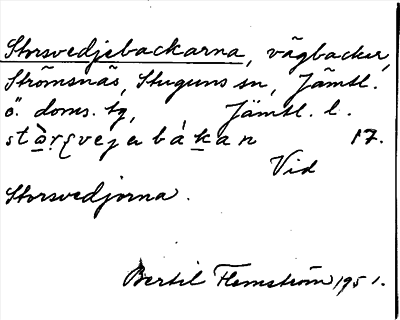 Storsvedjebackarna, vägbackar,
Strömsnäs, Stuguns sn, Jämtl.
ö. doms. tg, Jämtl. l.
17.
Vid
Storsvedjorna.
Bertil Flemström 1951.